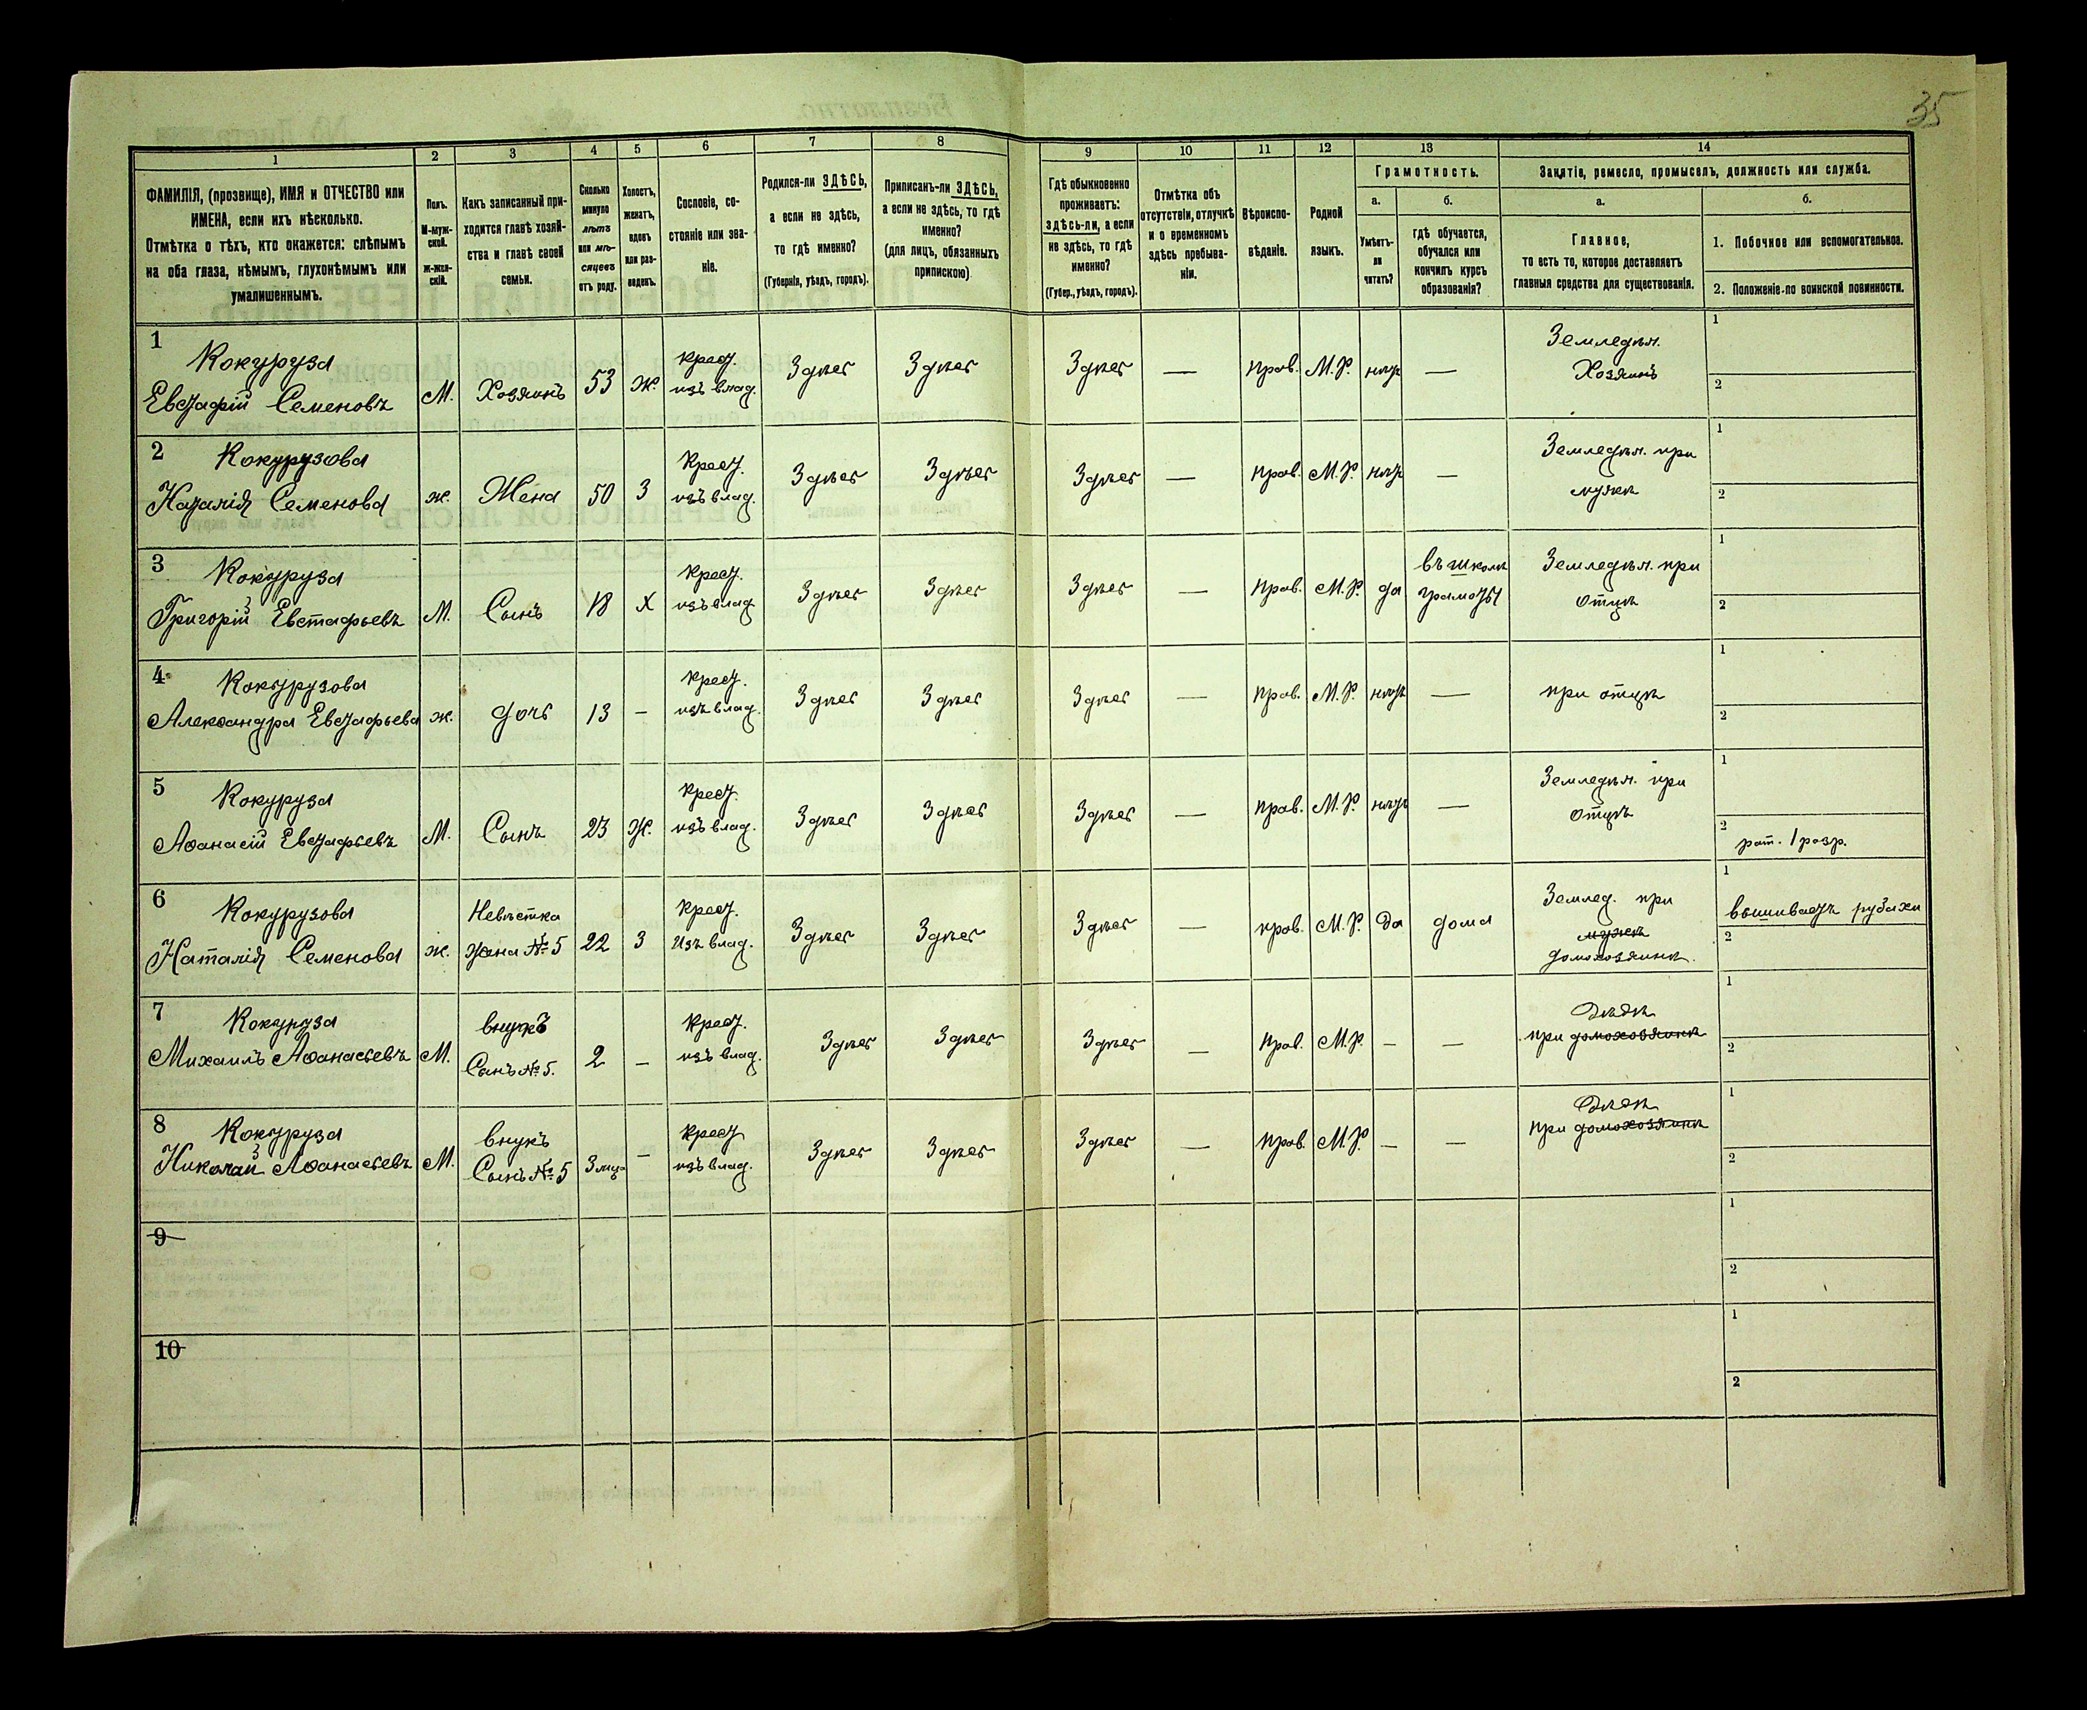 35
1
2
3
4
5
6
7
8
9
10
11
12
13
14
ФАМИЛІЯ, (прозвище), ИМЯ и ОТЧЕСТВО или
ИМЕНА, если ихъ нѣсколько.
Отмѣтка о тѣхъ, кто окажется: слѣпымъ
на оба глаза, нѣмымъ, глухонѣмымъ или
умалишеннымъ.
Полъ.
М-муж-
ской.
ж-жен-
скій.
Какъ записанный при-
ходится главѣ хозяй-
ства и главѣ своей
семьи.
Сколько
минуло
лѣтъ
или мѣ-
сяцевъ
отъ роду.
Холостъ,
женатъ,
вдовъ
или раз-
веденъ.
Сословіе, со-
стояніе или зва-
ніе.
Родился-ли ЗДѢСЬ,
а если не здѣсь,
то гдѣ именно?
(Губернія, уѣздъ, городъ).
Приписанъ-ли ЗДѢСЬ,
а если не здѣсь, то гдѣ
именно?
(для лицъ, обязанныхъ
припискою)
Гдѣ обыкновенно
проживаетъ:
здѣсь-ли, а если
не здѣсь, то гдѣ
именно?
(Губер., уѣздъ, городъ).
Отмѣтка объ
отсутствіи, отлучкѣ
и о временномъ
здѣсь пребыва-
ніи.
Вѣроиспо-
вѣданіе.
Родной
языкъ.
Грамотность.
а.
Умѣетъ-
ли
читать?
б.
гдѣ обучается,
обучался или
кончилъ курсъ
образованія?
Занятіе, ремесло, промыселъ, должность или служба.
а.
Главное,
то есть то, которое доставляетъ
главныя средства для существованія.
б.
1. Побочное или вспомогательное.
2. Положеніе по воинской повинности.
1
Кокуруза
Евстафій Семеновъ
М.
Хозяинъ
53
Ж.
Крест.
изъ влад.
Здѣсь
Здѣсь
Здѣсь
—
Прав.
М.Р.
нѣтъ
—
Земледѣл.
Хозяинъ
1
2
2
Кокурузова
Наталія Семенова
ж.
Жена
50
З
Крест.
изъ влад.
Здѣсь
Здѣсь
Здѣсь
—
Прав.
М.Р.
нѣтъ
—
Земледѣл. при
мужѣ
1
2
3
Кокуруза
Григорій Евстафьевъ
М.
Сынъ
18
Х
Крест.
изъ влад.
Здѣсь
Здѣсь
Здѣсь
—
Прав.
М.Р.
да
въ школѣ
грамоты
Земледѣл. при
отцѣ
1
2
4
Кокурузова
Александра Евстафьева
ж.
дочь
13
–
Крест.
изъ влад.
Здѣсь
Здѣсь
Здѣсь
—
Прав.
М.Р.
нѣтъ
—
при отцѣ
1
2
5
Кокуруза
Аѳанасій Евстафьевъ
М.
Сынъ
23
Ж.
Крест.
изъ влад.
Здѣсь
Здѣсь
Здѣсь
—
Прав.
М.Р.
нѣтъ
—
Земледѣл. при
отцѣ
1
2
рат. 1 разр.
6
Кокурузова
Наталія Семенова
ж.
Невѣстка
Жена №5
22
З
Крест.
Изъ влад.
Здѣсь
Здѣсь
Здѣсь
—
Прав.
М.Р.
да
дома
Землед. при
мужѣ
домохозяинѣ.
1
вышиваетъ рубахи
2
7
Кокуруза
Михаилъ Аѳанасьевъ
М.
внукъ
Сынъ №5.
2
–
Крест.
изъ влад.
Здѣсь
Здѣсь
Здѣсь
—
Прав.
М.Р.
–
—
Дѣдѣ
при домохозяинѣ
1
2
8
Кокуруза
Николай Аѳанасьевъ
М.
внукъ
Сынъ №5
3 мѣ.
–
Крест
изъ влад.
Здѣсь
Здѣсь
Здѣсь
—
Прав.
М.Р.
–
—
Дѣдѣ
при домохозяинѣ
1
2
9
1
2
10
1
2